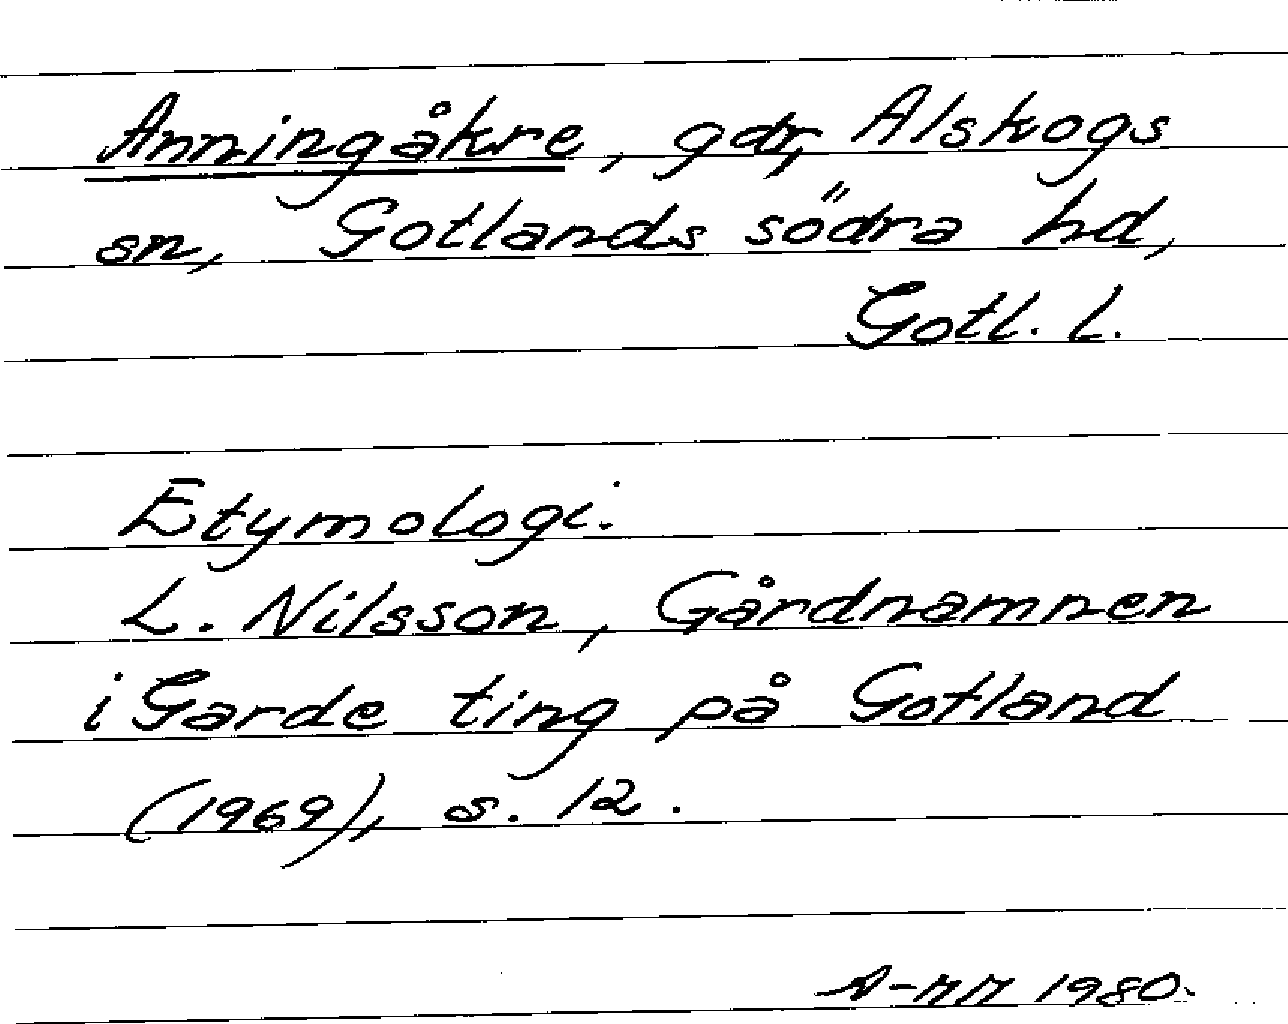 Anningåkre, gdr, Alskogs
sn, Gotlands södra hd,
Gotl. l.
Etymologi.
L. Nilsson, Gårdnamnen
i Garde ting på Gotland
(1969), s. 12.
A-MM 1980.